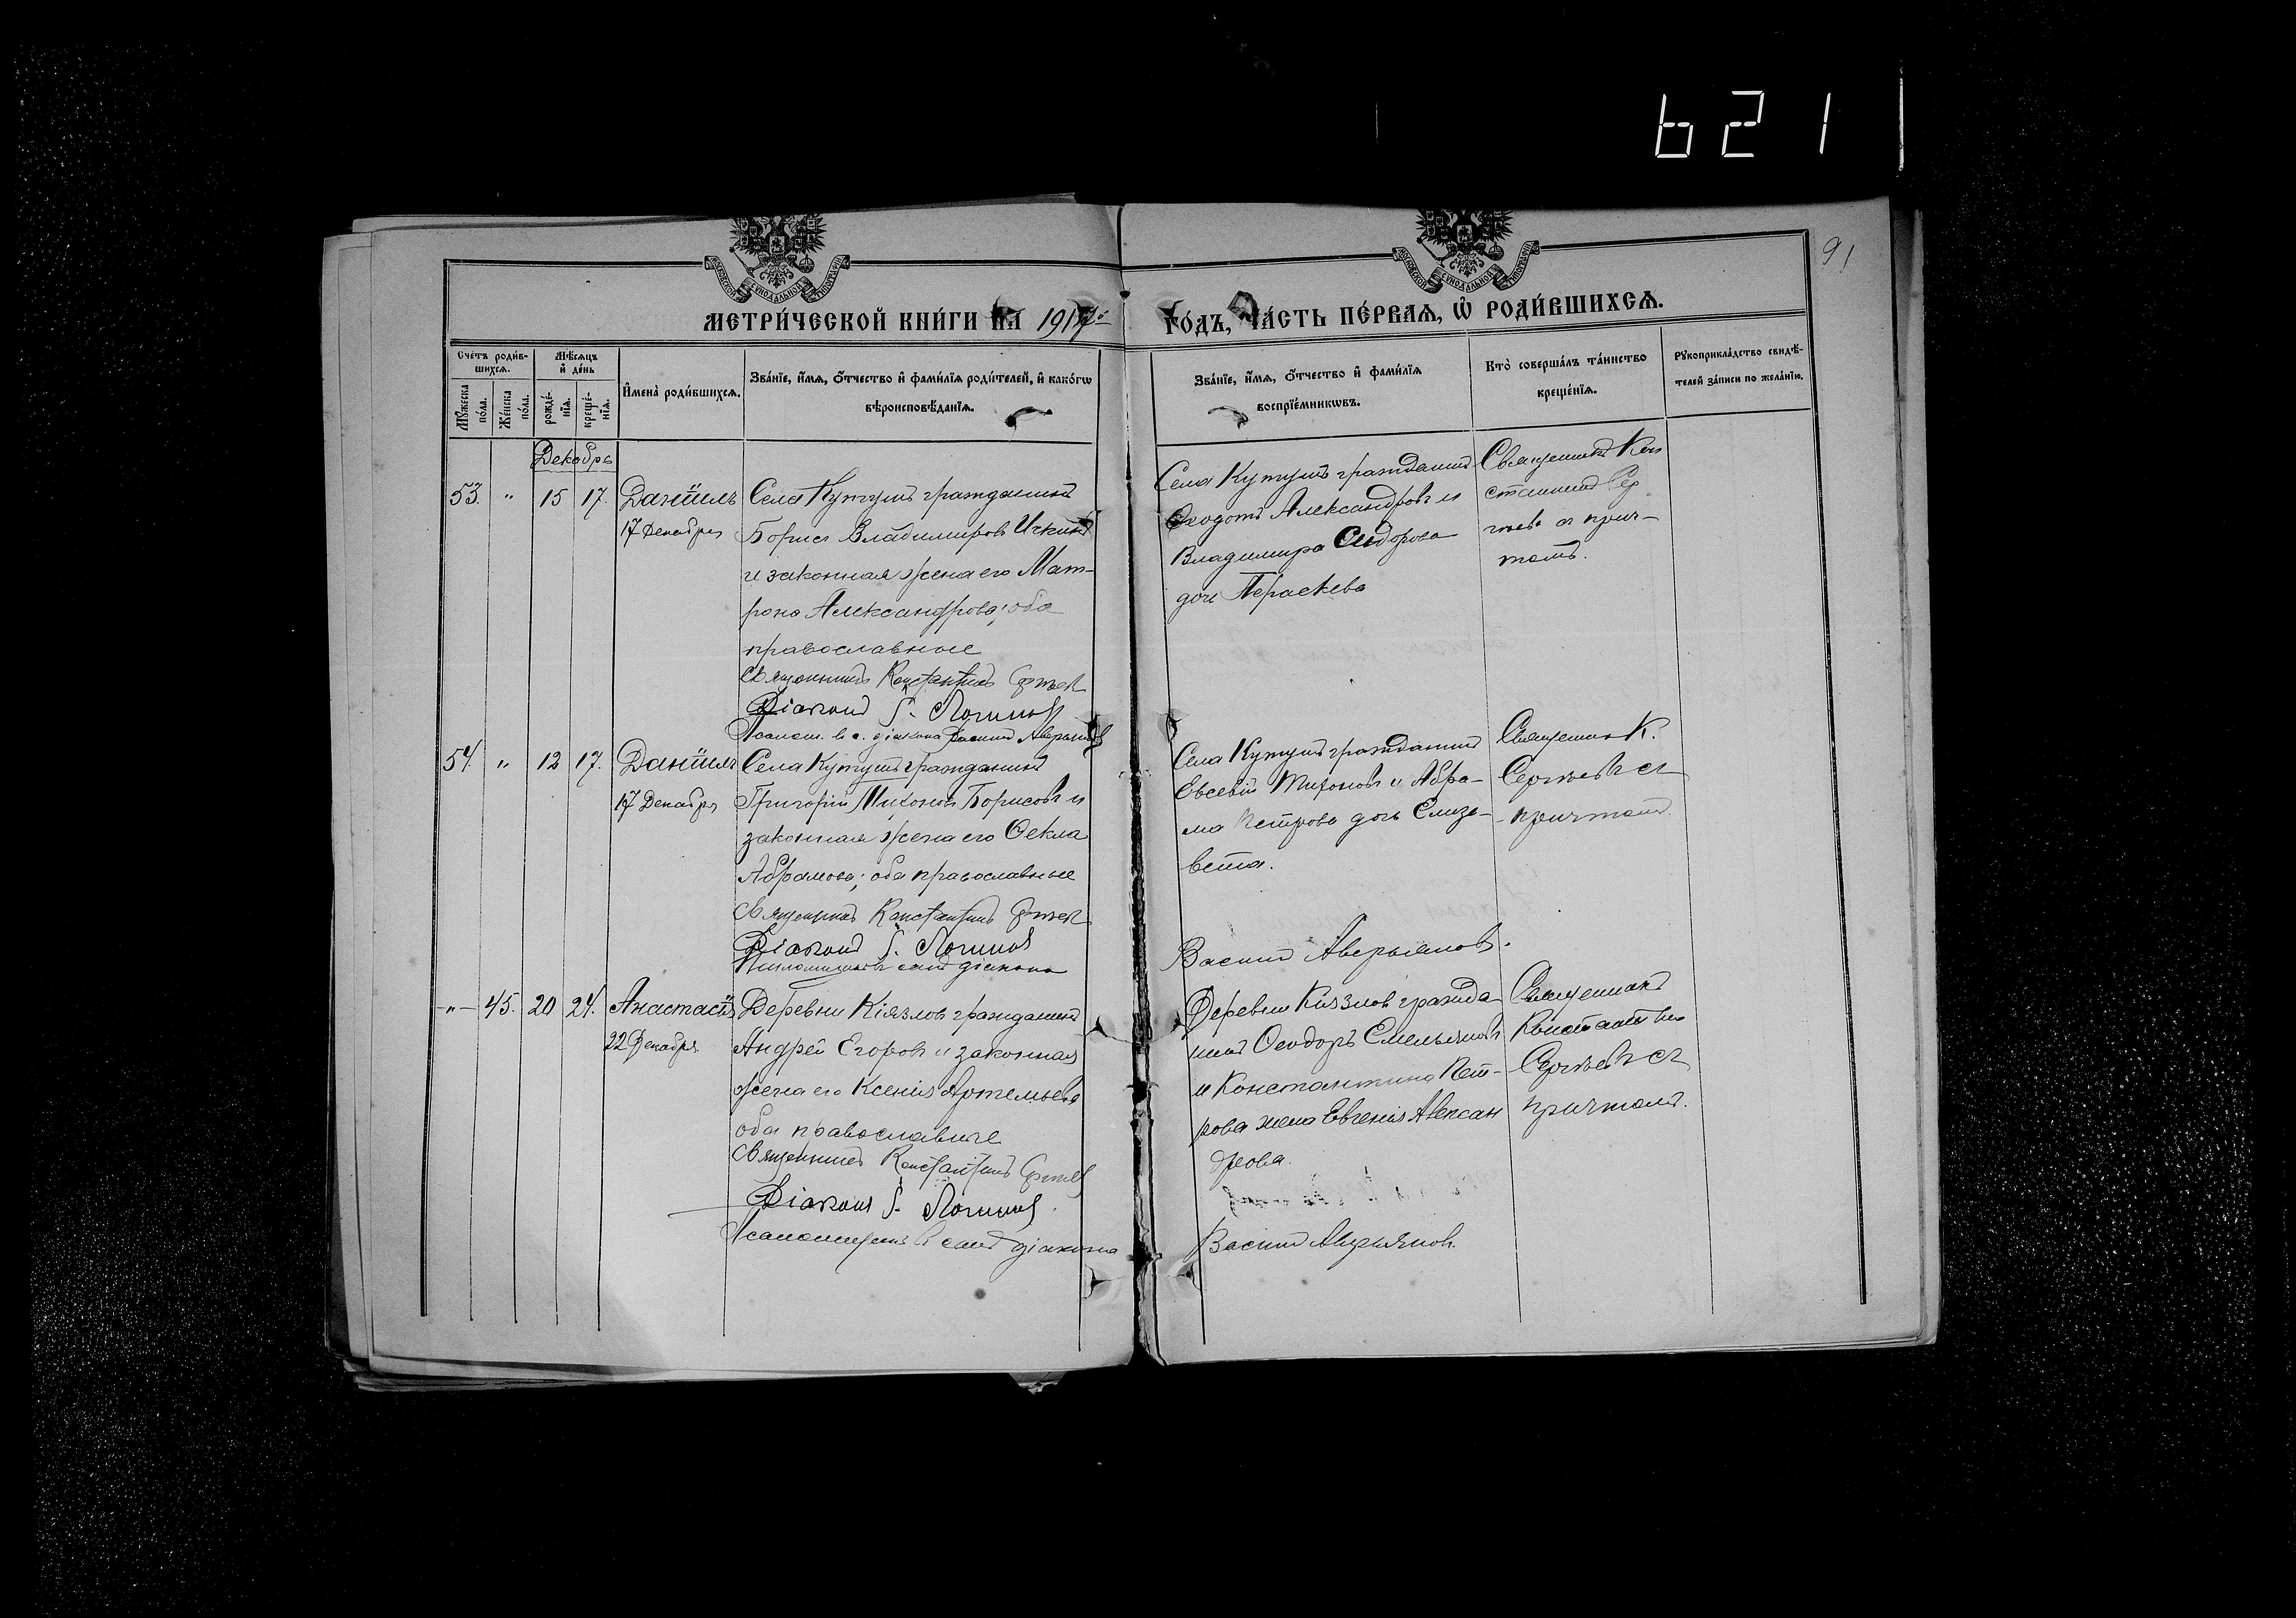 621
91
МОСКОВСКОЙ СѴНОДАЛЬНОЙ ТИПОГРАФІИ
МОСКОВСКОЙ СѴНОДАЛЬНОЙ ТИПОГРАФІИ
МЕТРИ́ЧЕСКОЙ КНИ́ГИ НА 1917й ГО́ДЪ, ЧА́СТЬ ПЕ́РВАѦ, Ѽ РОДИ́ВШИХСѦ.
Сче́тъ роди́в-
шихсѧ.
Мѣ́сѧцъ
и҆ де́нь
Мꙋ́жеска по́ла.
Же́нска по́ла.
рожде́-
нїѧ.
креще́-
нїѧ.
И҆мена̀ роди́вшихсѧ.
Зва́нїе, и҆́мѧ, ѻ҆́тчество и҆ фами́лїѧ роди́телей, и҆ како́гѡ
вѣроисповѣ́данїѧ.
Зва́нїе, и҆́мѧ, ѻ҆́тчество и҆ фами́лїѧ
воспрїе́мникѡвъ.
Кто̀ соверша́лъ та́инство
креще́нїѧ.
Рꙋкоприкла́дство свидѣ́-
телей за́писи по жела́нїю.
Декабрь
53. " 15 17. Даніилъ
17 Декабря
Села Кутушъ гражданинъ
Борисъ Владимировъ Ичкинъ
и законная жена его Мат-
рона Александрова; оба
православные
Священникъ Константинъ Сергѣевъ
Діаконъ Логиновъ
Псалом. в с. діакона Василій Аверьяновъ
Села Кутушъ гражданинъ
Ѳеодотъ Александровъ и
Владимира Сидорова
дочь Параскева
Священникъ Кон
стантинъ Сер
гѣевъ съ прич-
томъ.
54. " 12 17. Даніилъ
17 Декабря
Села Кутушъ гражданинъ
Григорій Тихоновъ Борисовъ и
законная жена его Ѳекла
Абрамова; оба православные
Священникъ Константинъ Сергѣевъ
Діаконъ Логиновъ
Псаломщикъ въ санѣ діакона
Василій Аверьяновъ.
Села Кутушъ гражданинъ
Евсевій Тихоновъ и Абра-
ма Петрова дочь Елиза-
вета.
Священник К.
Сергѣевъ съ
причтомъ.
-"- 45. 20 24. Анастасія
22 Декабря
Деревни Кіязловъ гражданинъ
Андрей Егоровъ и законная
жена его Ксенія Артемьева
оба православные
Священникъ Константинъ Сергѣевъ
Діаконъ Логиновъ
Псаломщикъ въ санѣ діакона
Василій Аверьяновъ.
Деревни Кіязловъ гражда-
нинъ Ѳеодоръ Емельяновъ
и Константина Пет-
рова жена Евгенія Алексан
дрова.
Священникъ
Константинъ
Сергѣевъ съ
причтомъ.